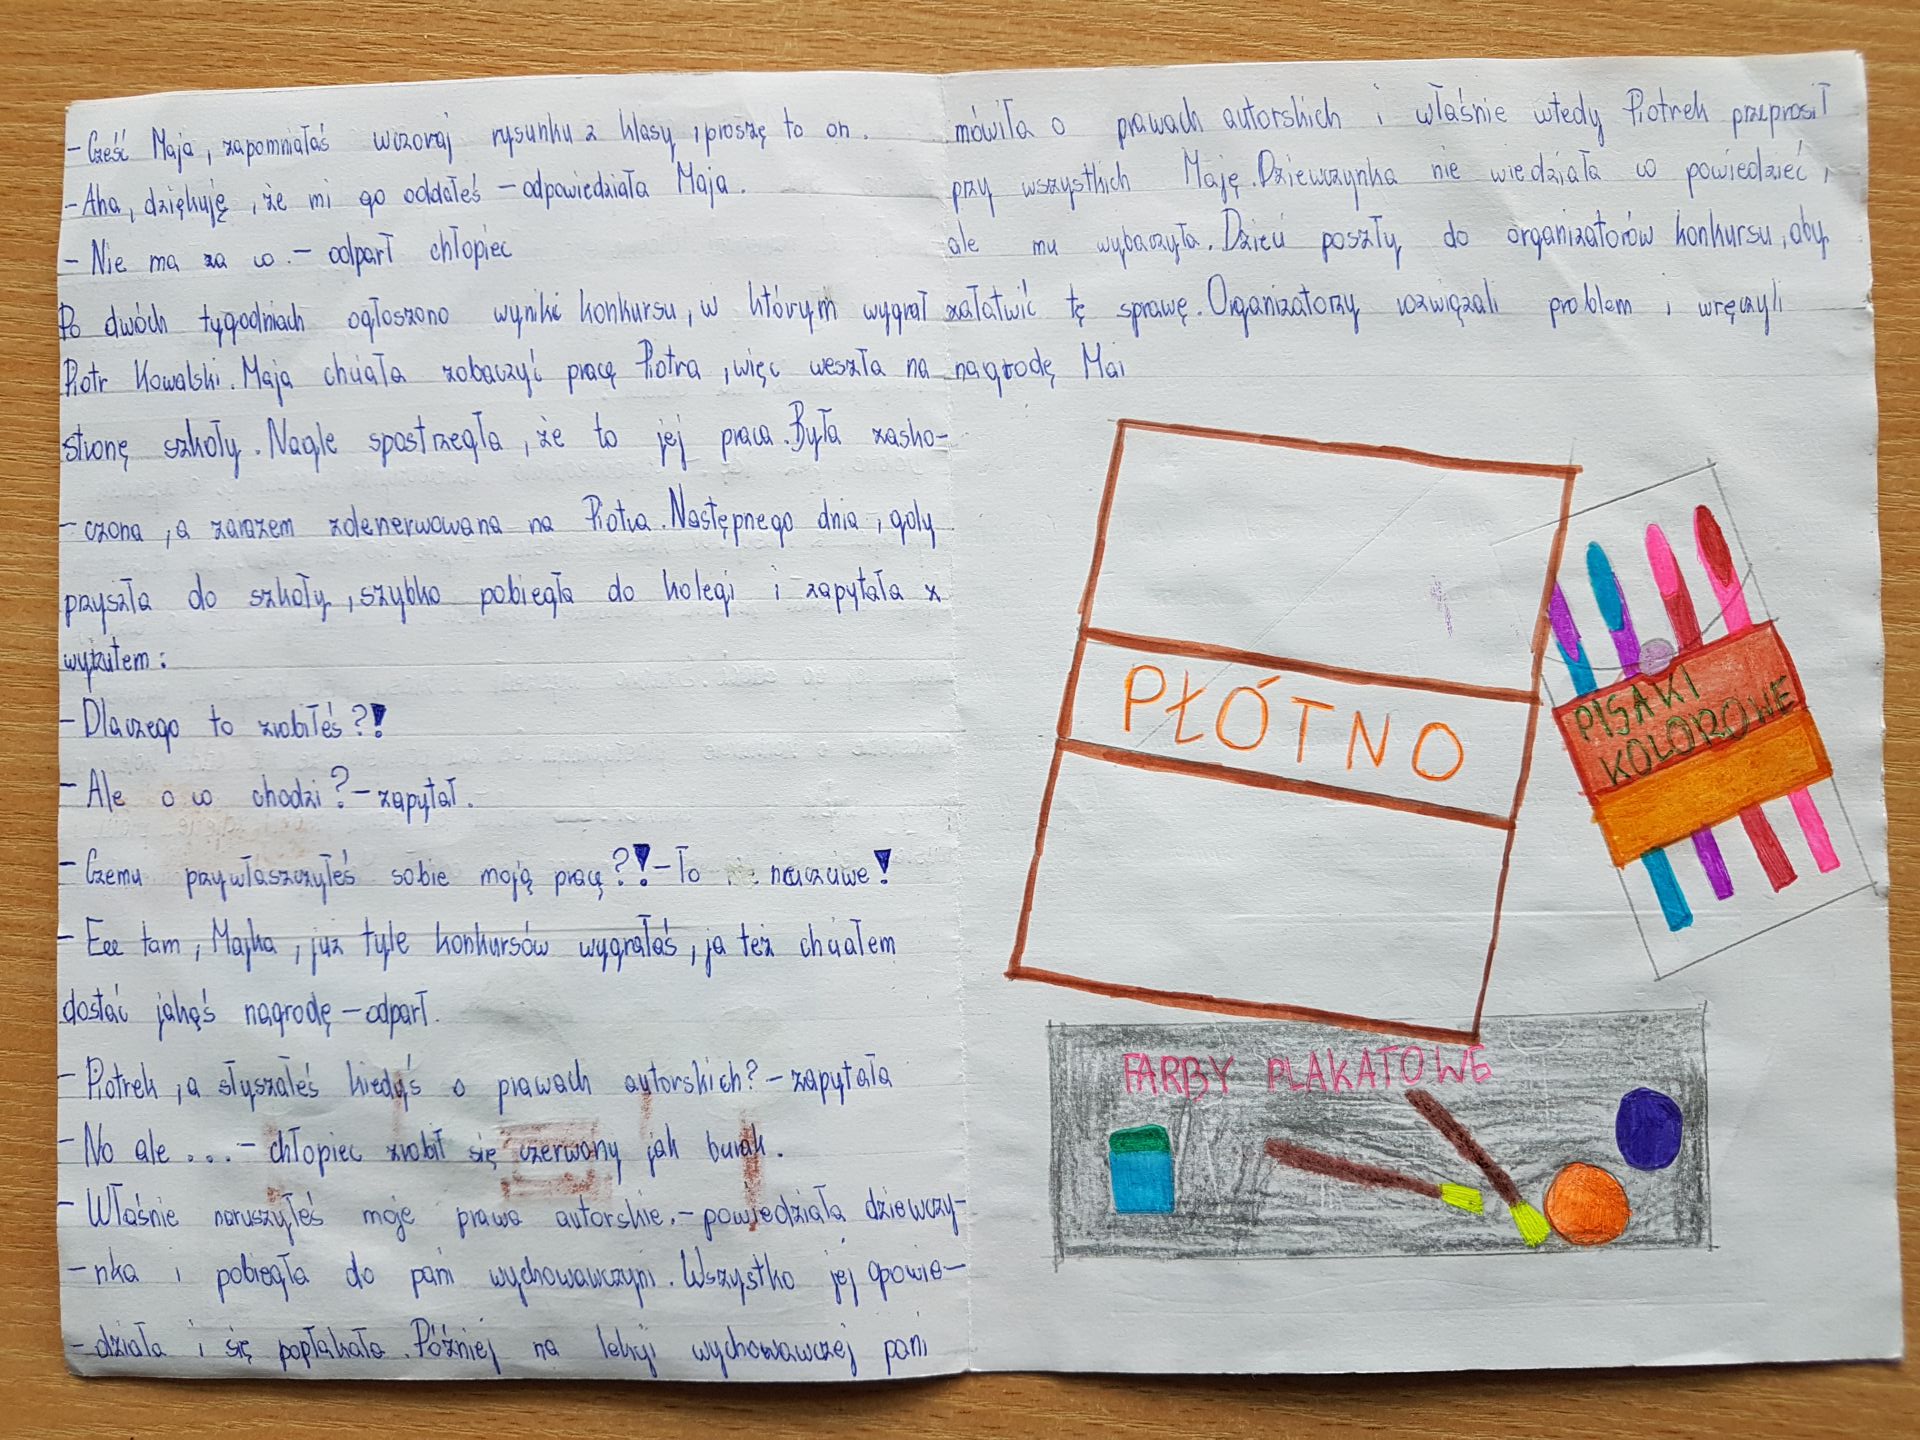 - Cześć Maja, zapomniałaś wczoraj rysunku z klasy, proszę to on.
- Aha, dziękuję, że mi go oddałeś - odpowiedziała Maja.
- Nie ma za co. - odparł chłopiec
Po dwóch tygodniach ogłoszono wyniki konkursu, w którym wygrał
Piotr Kowalski. Maja chciała zobaczyć pracę Piotra, więc weszła na
stronę szkoły. Nagle spostrzegła, że to jej praca. Była zasko-
-czona, a zarazem zdenerwowana na Piotra. Następnego dnia, gdy
przyszła do szkoły, szybko pobiegła do kolegi i zapytała z
wyrzutem:
- Dlaczego to zrobiłeś?!
- Ale o co chodzi? - zapytał.
- Czemu przywłaszczyłeś sobie moją pracę?! - To nieuczciwe!
- Eee tam, Majka, już tyle konkursów wygrałaś, ja też chciałem
dostać jakąś nagrodę - odparł.
- Piotrek, a słyszałeś kiedyś o prawach autorskich? - zapytała
- No ale ... - chłopiec zrobił się czerwony jak burak.
- Właśnie naruszyłeś moje prawa autorskie. - powiedziała dziewczy-
-nka i pobiegła do pani wychowawczyni. Wszystko jej opowie-
-działa i się popłakała. Później na lekcji wychowawczej pani
mówiła o prawach autorskich i właśnie wtedy Piotrek przeprosił
przy wszystkich Maję. Dziewczynka nie wiedziała co powiedzieć,
ale mu wybaczyła. Dzieci poszły do organizatorów konkursu, aby
załatwić tę sprawę. Organizatorzy rozwiązali problem i wręczyli
nagrodę Mai
PŁÓTNO
PISAKI
KOLOROWE
FARBY PLAKATOWE